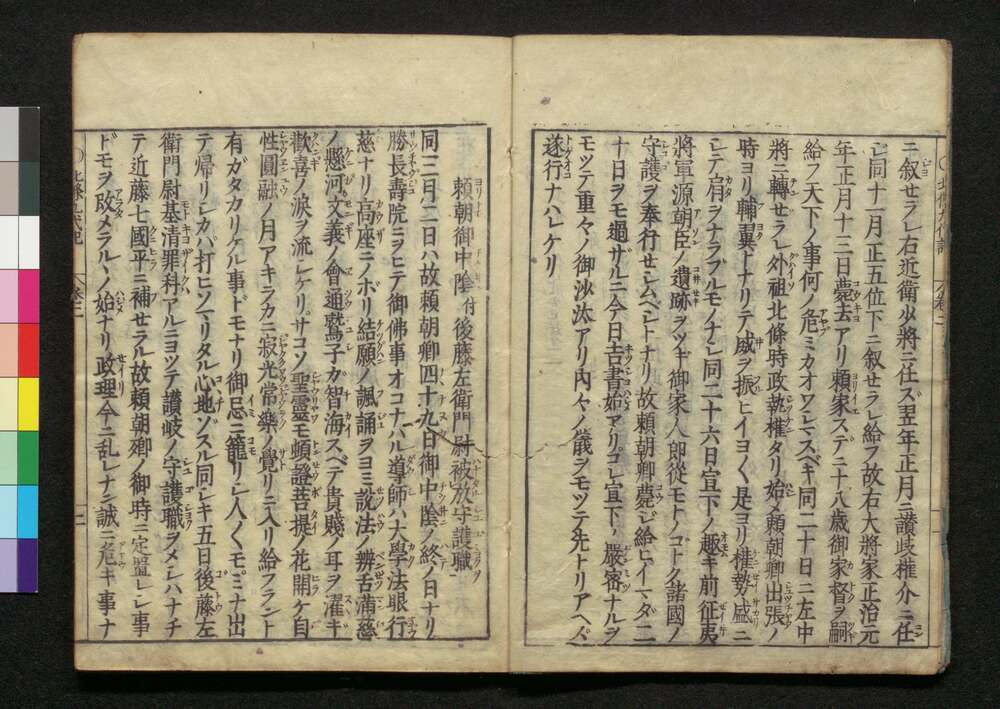 ニ叙セラレ右近衛少將ニ任ズ翌年正月ニ讃岐權介ニ任
じ同十一月正五位下ニ叙セラレ給フ故右大將家正治元
年正月十三日薨去アリ頼家スデニ十八歳御家督ヲ嗣
給フ天下ノ事何ノ危ミカオワレマスベキ同二十日ニ左中
將ニ轉セラレ外祖北條時政執權タリ始メ頼朝卿出張ノ
時ヨリ輔翼トナリテ威ヲ振ヒイヨ〱是ヨリ權勢盛ニ
シテ肩ヲナラブルモノナシ同二十六日宣下ノ趣キ前征夷
將軍源朝臣ノ遺跡ヲツギ御家人郎從モトノゴトク諸國ノ
守護ヲ奉行セシムベシトナリ故頼朝卿薨ジ給ヒイマダ二
十日ヲモ過サルニ今日吉書始アリコレ宣下ノ嚴密ナルヲ
モツテ重々ノ御沙汰アリ内々ノ儀ヲモツテ先トリアヘズ
遂行ナハレケリ
頼朝御中陰付後藤左衛門尉被放守護職
同三月二日ハ故頼朝卿四十九日御中陰ノ終ノ日ナリ
勝長壽院ニヲヒテ御佛事オコナハル導師ハ大學法眼行
慈ナリ高座ニノボリ結願ノ諷誦ヲヨミ説法ノ辨舌滿慈
ノ懸河文義ノ會通鶖子ガ智海スベテ貴賤ノ耳ヲ濯ギ
歡喜ノ涙ヲ流シケリサコソ聖靈モ頓證菩提ノ花開ケ自
性圓融ノ月アキラカニ寂光常樂ノ覺リニ入リ給フラント
有ガタカリケル事ドモナリ御忌ニ籠リシ人〱モミナ出
テ帰リシカバ打ヒソマリタル心地ゾスル同シキ五日後藤左
衛門尉基清罪科アルニヨツテ讃岐ノ守護職ヲメシハナチ
テ近藤七國平ニ補セラル故頼朝卿ノ御時ニ定置レシ事
ドモヲ改メラルヽノ始ナリ政理今ニ乱レナン誠ニ危キ事ナ